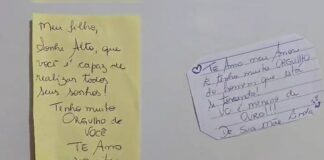 Meu filho,
Sonhe Alto, que
você é capaz de
realizar todos
seus sonhos!
Tenho muito
Orgulho de
VOCÊ
TE AMO
TE Amo meu Amor
E tenho muito ORGULHO
do homem que está
se
é menino de
OURO!!!
De sua Mãe Linda